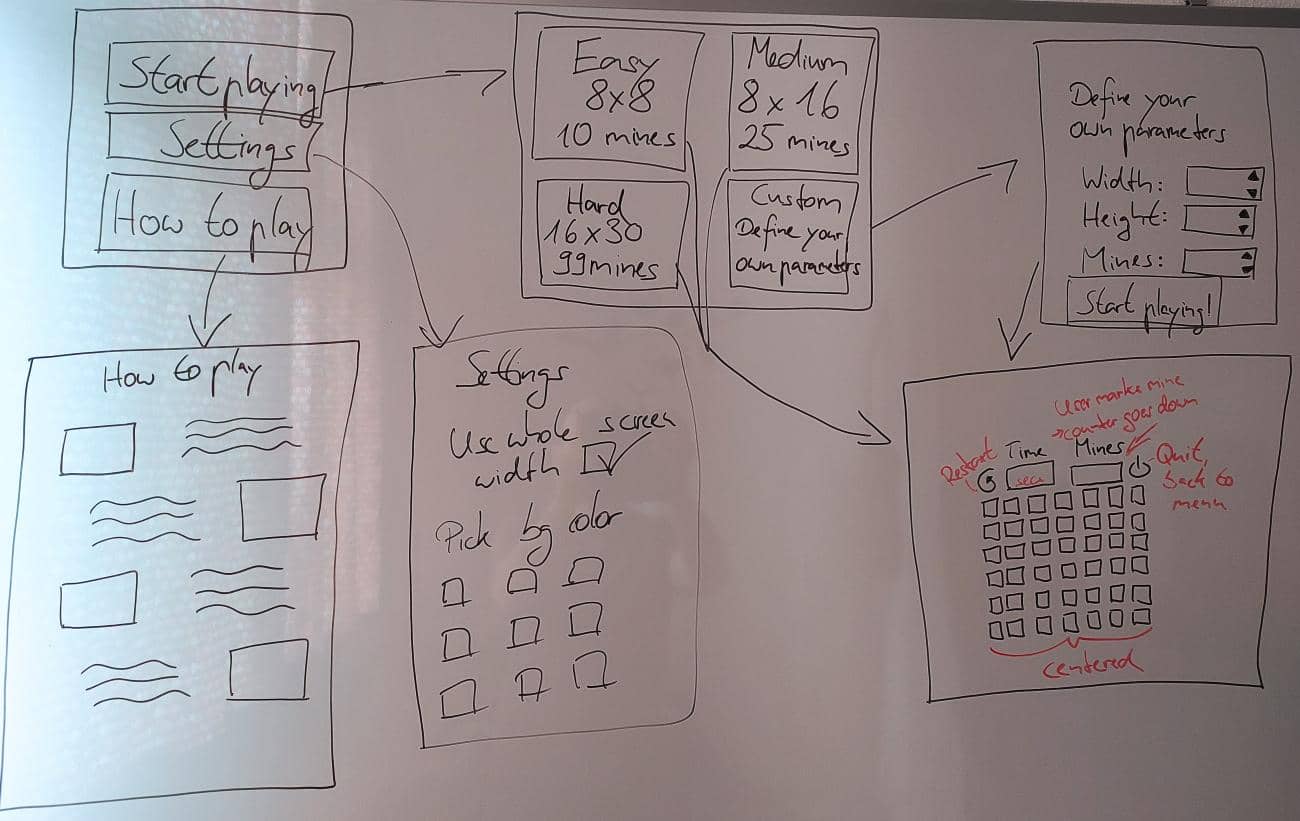 Start playing
Settings
How to play
Easy
8x8
10 mines
Medium
8 x 16
25 mines
Hard
16x30
99 mines
Custom
Define your
own parameters
Define your
own parameters
Width:
Height:
Mines:
Start playing!
How to play
Settings
Use whole screen
width
Pick bg color
User marks mine
→counter goes down
Restart
Time
Mines
Quit,
back to
menu
sec
centered